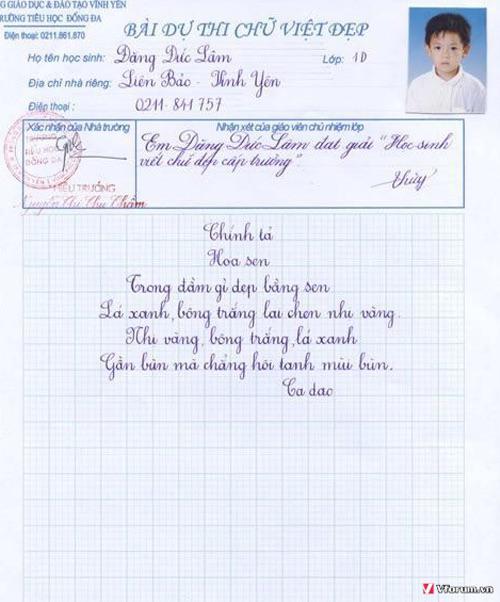 G GIÁO DỤC & ĐÀO TẠO VĨNH YÊN
TRƯỜNG TIỂU HỌC ĐỐNG ĐA
Điện thoại: 0211.861.870
BÀI DỰ THI CHỮ VIỆT ĐẸP
Họ tên học sinh: Đăng Đức Lâm Lớp: 1D
Địa chỉ nhà riêng: Liên Bảo - Vĩnh Yên
Điện thoại : 0211-841 757
Xác nhận của Nhà trường
TIỂU HỌC
ĐỐNG ĐA
HIỆU TRƯỞNG
Nhận xét của giáo viên chủ nhiệm lớp
Em Đăng Đức Lâm đạt giải "Học sinh
viết chữ đẹp cấp trường".
Thúy
Chính tả
Hoa sen
Trong đầm gì đẹp bằng sen
Lá xanh, bông trắng lại chen nhị vàng.
Nhị vàng, bông trắng, lá xanh
Gần bùn mà chẳng hôi tanh mùi bùn.
Ca dao
Vforum.vn